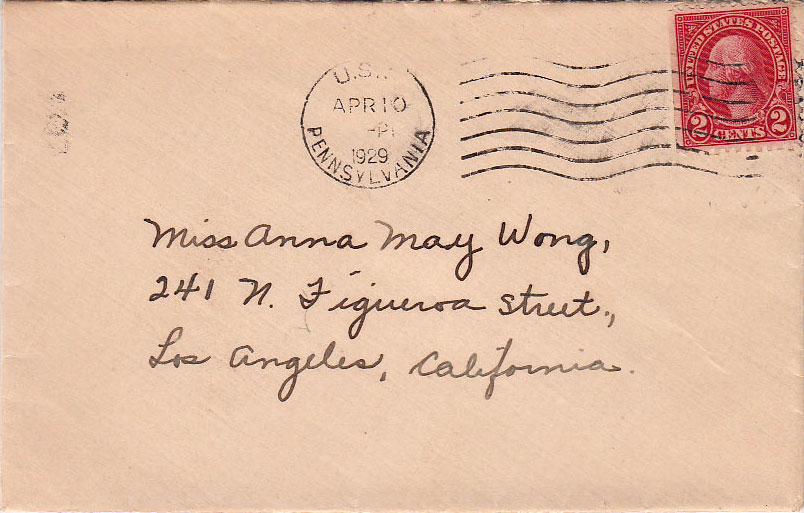 U.S.
APR 10
-P
1929
PENNSYLVANIA
UNITED STATES POSTAGE
2 CENTS 2
Miss Anna May Wong,
241 N. Figueroa Street.,
Los Angeles, California.